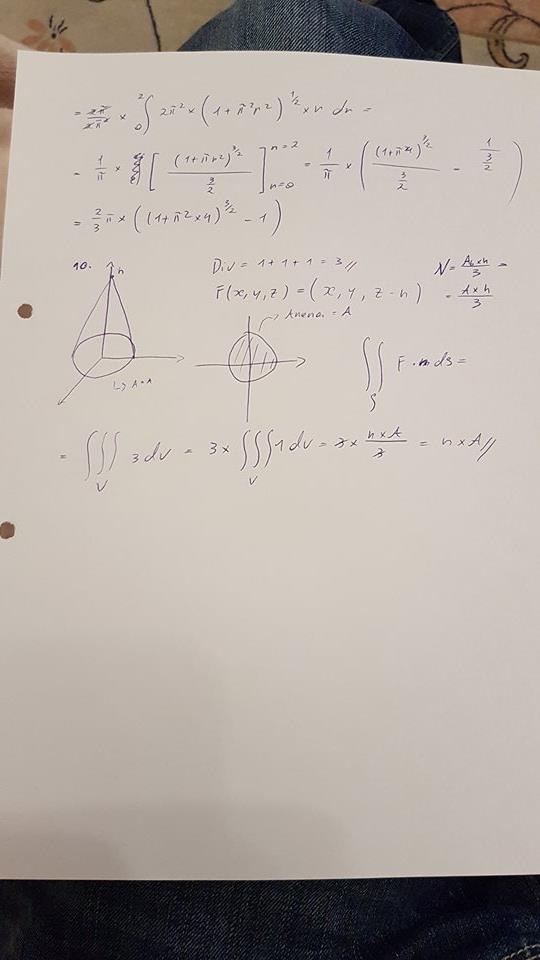 = 2π/2π² × ₀∫² 2π² × (1+π²r²)^1/2 × r dr =
= 1/π × [ (1+πr²)^3/2 / 3/2 ] r=2 r=0 = 1/π × ( (1+π²4)^3/2 / 3/2 - 1 / 3/2 )
= 2/3 π × ((1+π²×4)^3/2 - 1)
10. h Div = 1+1+1 = 3 // V = Ab×h/3 =
F(x,y,z) = (x, y, z-h) = A×h/3
↳ A=A Arena = A ∬ₛ F·n ds =
= ∭ᵥ 3 dV = 3 × ∭ᵥ 1 dV = 3 × h×A/3 = h×A //